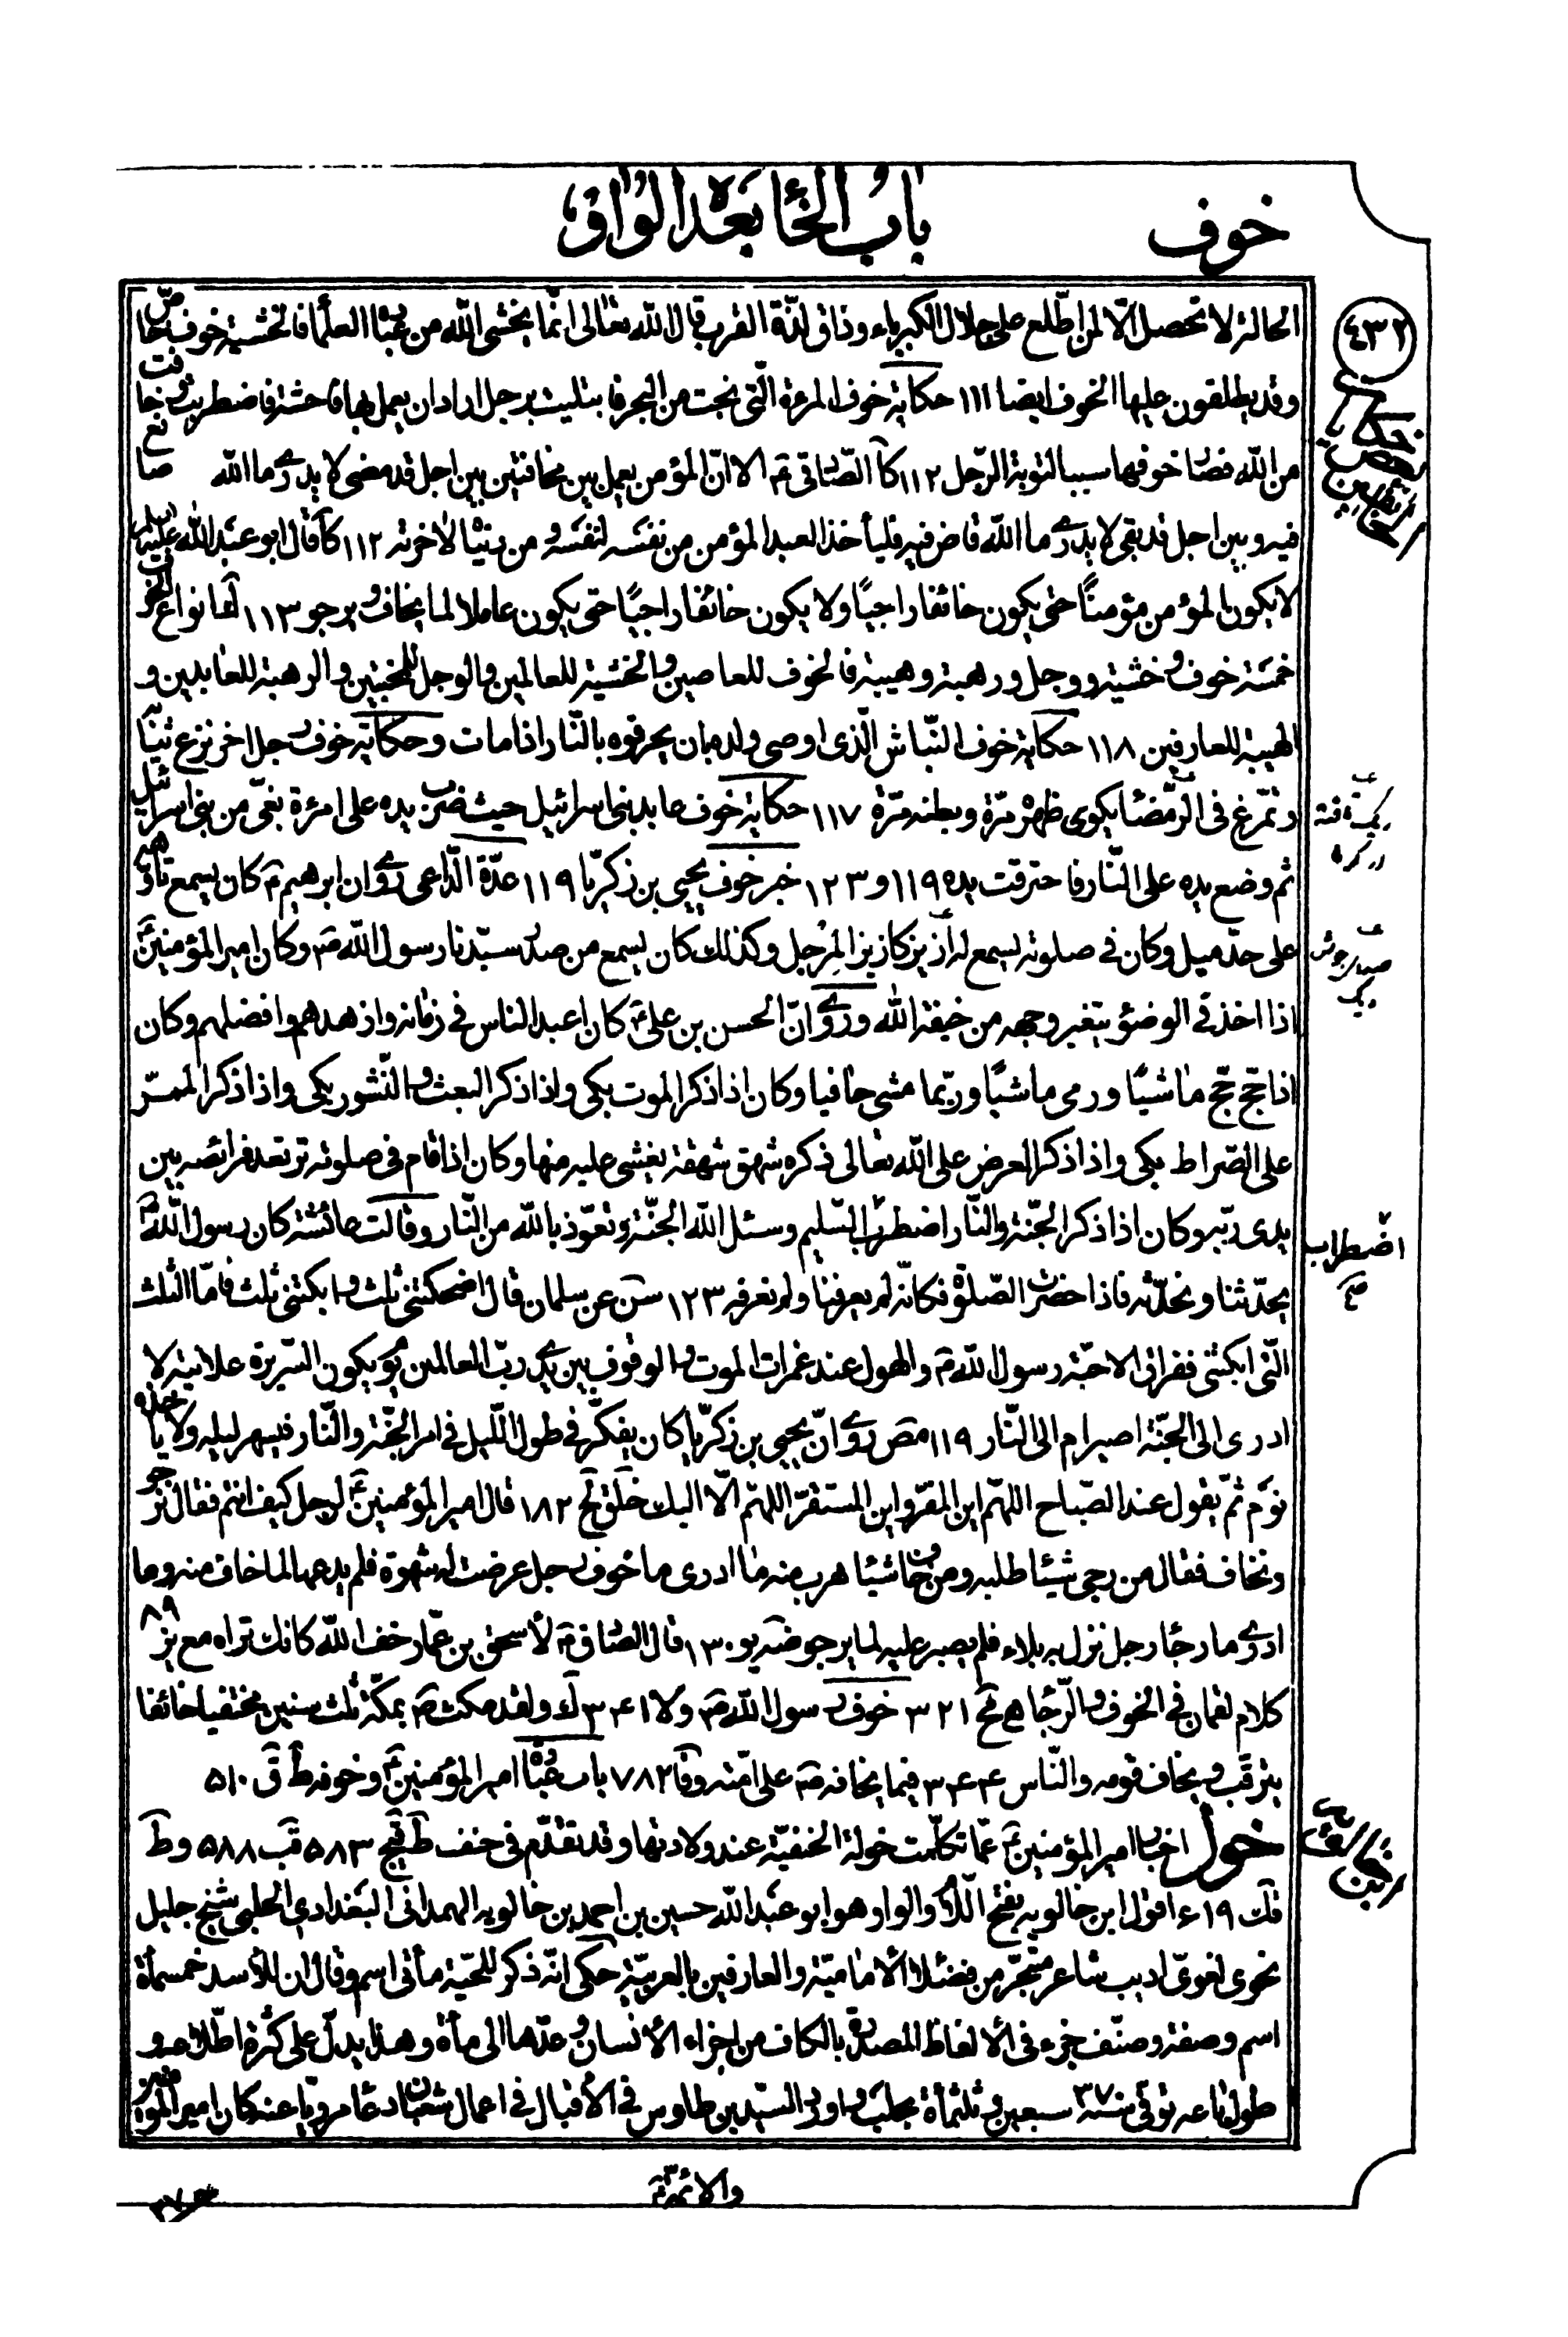 خوف
باب الخاء بعده الواو
٤٣٢
الحالة لا تحصل الّا لمن اطّلع على جلال الكبرياء وذاق لذّة القرب قال الله تعالى انّما يخشى الله من عباده العلمآء فالخشية خوف خاصّ
وقد يطلقون عليها الخوف ايضا ١١١ حكاية خوف المرءة الّتى نجت من البحر فابتليت برجل اراد ان يعمل بها فاحشة فاضطربت وخافت
من الله فصار خوفها سببا لتوبة الرّجل ١١٢ كا الصّادق ع الا انّ المؤمن يعمل بين مخافتين بين اجل قد مضى لا يدرى ما الله صانع
فيه وبين اجل قد بقى لا يدرى ما الله قاض فيه فليأخذ العبد المؤمن من نفسه لنفسه ومن دنياه لاخرته ١١٢ كا قال ابو عبد الله عليه السلم
لا يكون المؤمن مؤمنًا حتى يكون خائفا راجيًا ولا يكون خائفا راجيًا حتى يكون عاملا لما يخاف ويرجو ١١٣ ل انواع الخوف
خمسة خوف وخشية ووجل ورهبة وهيبة فالخوف للعاصين والخشية للعالمين والوجل للمخبتين والرهبة للعابدين و
الهيبة للعارفين ١١٨ حكاية خوف النّباش الّذى اوصى ولده بان يحرقوه بالنّار اذا مات وحكاية خوف رجل اخر نزع ثيابه
وتمرّغ فى الرّمضاء يكوى ظهره مرّة وبطنه مرّة ١١٧ حكاية خوف عابد بنى اسرائيل حيث ضرب يده على امرءة بغىّ من بنى اسرائيل
ثم وضع يده على النّار فاحترقت يده ١١٩ و ١٢٣ خبر خوف يحيى بن زكريّا ١١٩ عدّة الدّاعى روى ان ابرهيم ع كان يسمع تأوّهه
على حدّ ميل وكان فى صلوته يسمع له أزيز كازيز المرجل وكذلك كان يسمع من صدر سيّدنا رسول الله ص وكان امير المؤمنين ع
اذا اخذ فى الوضوء يتغير وجهه من خيفة الله وروى انّ الحسن بن على ع كان اعبد الناس فى زمانه وازهدهم وافضلهم وكان
اذا حجّ حجّ ماشيًا ورمى ماشيًا وربّما مشى حافيا وكان اذا ذكر الموت بكى واذا ذكر البعث والنّشور بكى واذا ذكر الممرّ
على الصّراط بكى واذا ذكر العرض على الله تعالى ذكره شهق شهقة يغشى عليه منها وكان اذا قام فى صلوته ترتعد فرائصه بين
يدى ربّه وكان اذا ذكر الجنّة والنّار اضطرب اضطراب السّليم وسئل الله الجنّة وتعوّذ بالله من النّار وقالت عائشة كان رسول الله ص
يحدّثنا ونحدّثه فاذا حضرت الصّلوة فكانّه لم يعرفنا ولم نعرفه ١٢٣ سن عن سلمان قال اضحكتنى ثلث وابكتنى ثلث فامّا الثلث
الّتى ابكتنى ففراق الاحبّة رسول الله ص والهول عند غمرات الموت والوقوف بين يدى ربّ العالمين يوم يكون السّريرة علانية لا
ادرى الى الجنّة اصير ام الى النّار ١١٩ مص روى انّ يحيى بن زكريّا كان يفكّر فى طول اللّيل فى امر الجنّة والنّار فيسهر ليله ولا يأخذه
نوم ثمّ يقول عند الصّباح اللهمّ اين المفرّ واين المستقرّ اللهمّ الّا اليك خلق لح ١٨٢ قال امير المؤمنين ع لرجل كيف انتم فقال نرجو
ونخاف فقال من رجى شيئا طلبه ومن خاف شيئا هرب منه ما ادرى ما خوف رجل عرضت له شهوة فلم يدعها لما خاف منه وما
ادرى ما رجاء رجل نزل به بلاء فلم يصبر عليه لما يرجو ضه يو ١٣٠ قال الصّادق ع لأسحق بن عمّار خف الله كانك تراه مع يز ٨٩
كلام لقمان فى الخوف والرّجاء هـ لح ٣٢١ خوف رسول الله ص ولا ٣٤١ ك ولقد مكث ص بمكّة ثلث سنين مختفيا خائفا
يترقّب ويخاف قومه والنّاس ٣٤٤ فيما يخافه ص على امّته وفا ٧٨٢ باب عبادة امير المؤمنين ع وخوفه ط ق ٥١٠
خول اخبار امير المؤمنين ع عمّا تكلّمت خولة الحنفيّة عند ولادتها وقد تقدّم فى حنف ط قيج ٥٨٣ قب ٥٨٨ وط
فك ٦١٩ اقول ابن خالويه بفتح اللّام والواو هو ابو عبد الله حسين بن احمد بن خالويه الهمدانى البغدادى الحلبى شيخ جليل
نحوى لغوىّ اديب شاعر متبحّر من فضلاء الأماميّة والعارفين بالعربيّة حكى انّه ذكر للحيّة مأتى اسم وقال ان للأسد خمسمأة
اسم وصفة وصنّف جزء فى الألفاظ المصدرة بالكاف من اجزاء الأنسان وعدّها الى مأة وهذا يدلّ على كثرة اطّلاعه و
طول باعه توفّى سنة ٣٧٠ سبعين وثلثمأة بحلب واورد السّيد بن طاوس فى الأقبال فى اعمال شعبان دعاء مرويّا عنه كان امير المؤمنين
والائمة ع
حكاية بعض الخائفين
صداى جوش ديك
اضطراب
ابن خالويه